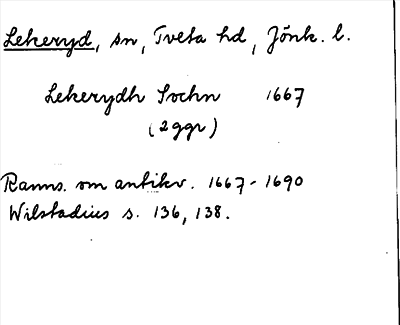 Lekeryd, sn, Tveta hd, Jönk. l.
Lekerydh Sochn 1667
(2ggr)
Ranns. om antikv. 1667-1690
Wilstadius s. 136, 138.